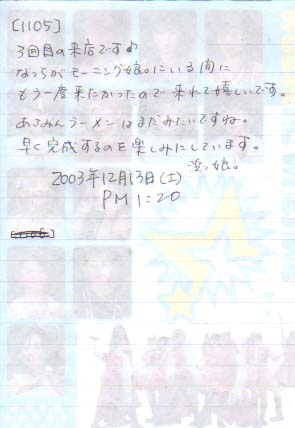 [1105]
3回目の来店です♪
なっちがモーニング娘。にいる間に
もう一度来たかったので来れて嬉しいです。
あさみんラーメンはまだみたいですね。
早く完成するのを楽しみにしています。
浜っ娘。
2003年12月13日(土)
PM 1:20